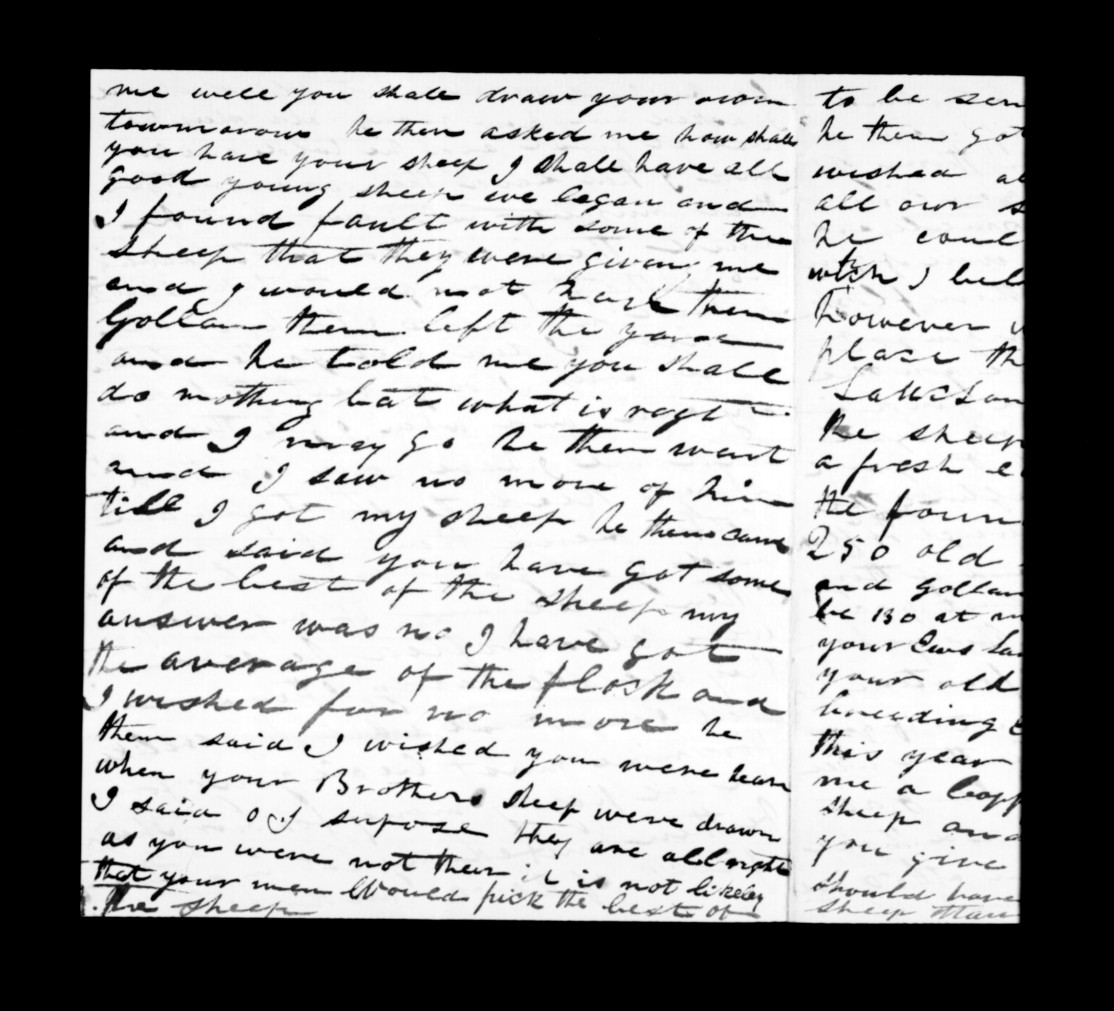 me well you shall draw your own
towmorow he then asked me how shall
you have your sheep I shall have all
good young sheep we began and
I found fault with some of the
sheep that they were giving me
and I would not have them
Gollan then left the yard
and he told me you shall
do nothing bat what is reght
and I may go he then want
and I saw no more of him
till I got my sheep he then came
and said you have got some
of the best of the sheep my
answer was no I have got
the average of the flock and
I wished for no more he
then said I wished you were hear
when your Brothers sheep were drawn
I said O I supose they are all right
as you were not then it is not likeley
that your men Would pick the best of
the sheep
to be sen
he then got
wished al
all our s
he coul
wish I bel
however
place th
the sheep
a fresh
He foun
250 old
and Gollan
be 130 at m
your Ews La
your old
breeding
this year
me a
sheep and
you give
should have
sheep than